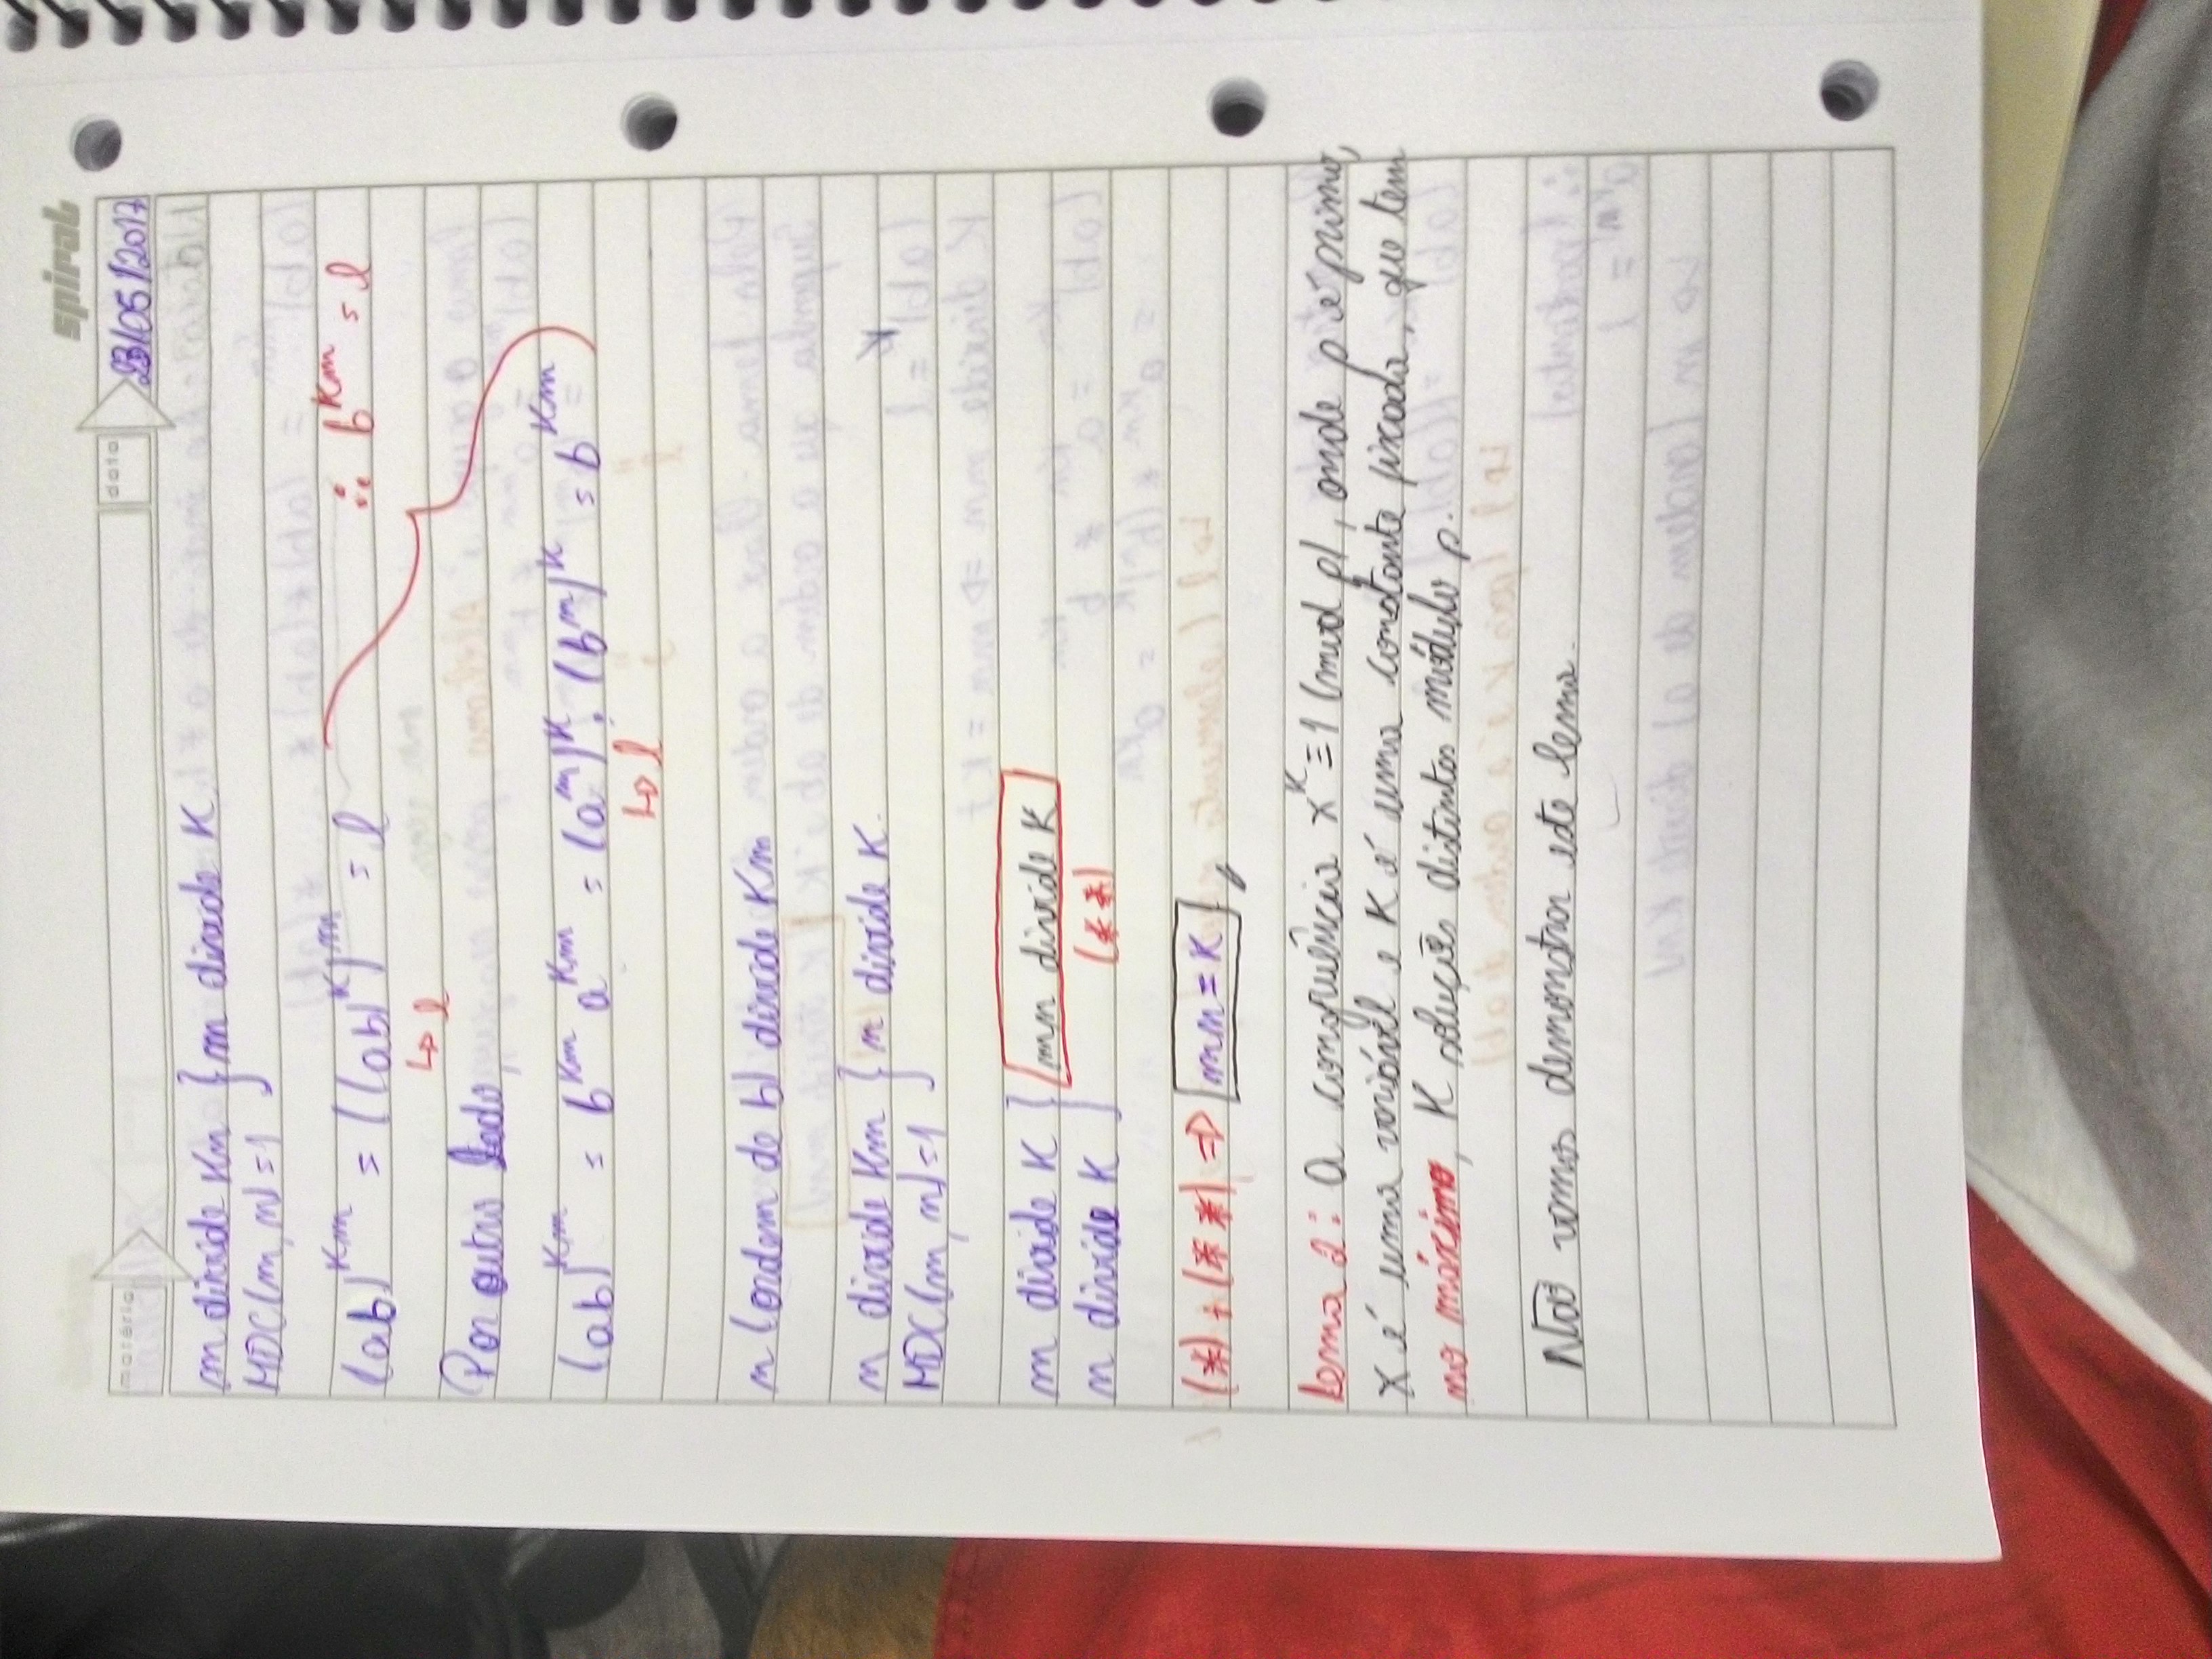 spiral
matéria data 23/05/2017
m divide Kn } m divide K
MDC(m, n) = 1
(ab)^Km = ((ab)^K)^m = l ∴ b^Km = l
↳ l
Por outro lado,
(ab)^Km = b^Km a^Km = (a^m)^K . (b^m)^K = b^Km
↳ l
n (ordem de b) divide Km
n divide Km } n divide K.
MDC(m, n) = 1
m divide K } mn divide K
n divide K (**)
(*) + (**) ⇒ mn = K
Lema 2: A congruência x^K ≡ 1 (mod p), onde p é primo,
x é uma variável e K é uma constante fixada, que tem
no máximo, K soluções distintas módulo p.
Não vamos demonstrar este lema.